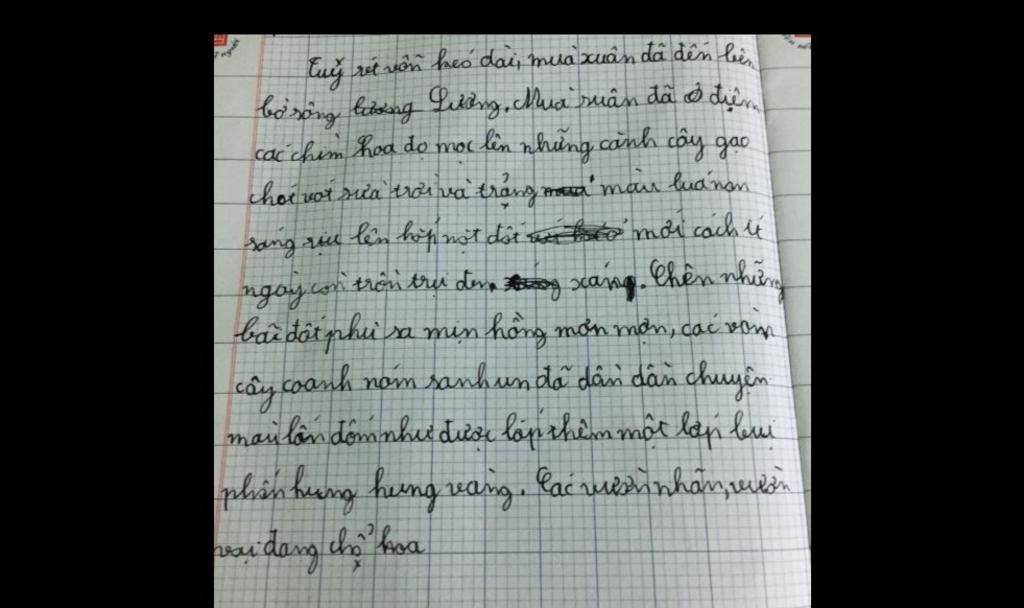 Tuy rét vẫn kéo dài, mùa xuân đã đến bên
bờ sông Lương. Mùa xuân đã ở điệm
các chùm hoa đỏ mọc lên những cành cây gạo
chót vót giữa trời và trảng màu lúa non
sáng rựu lên hốp một đôt mới cách lí
ngày còn trôn trụi đen xáng. Chên những
bãi đất phù sa mịn hồng mơn mợn, các vòm
cây coanh năm xanh un đã dần dần chuyện
mau lấm đốm như được lấp thêm một lớp bụi
phấn hung hung vàng. Các vườn nhãn, vườn
vại đang chổ hoa